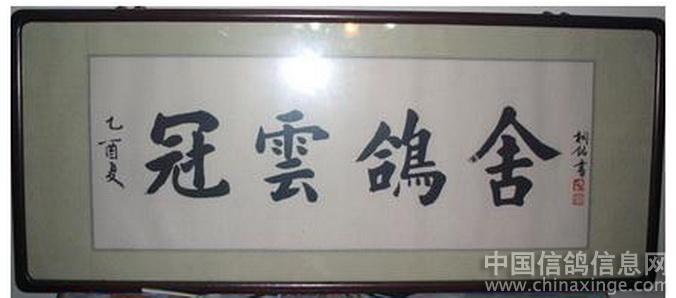 乙酉夏
冠雲鴿舍
桐銘書
中国信鸽信息网
www.chinaxinge.com